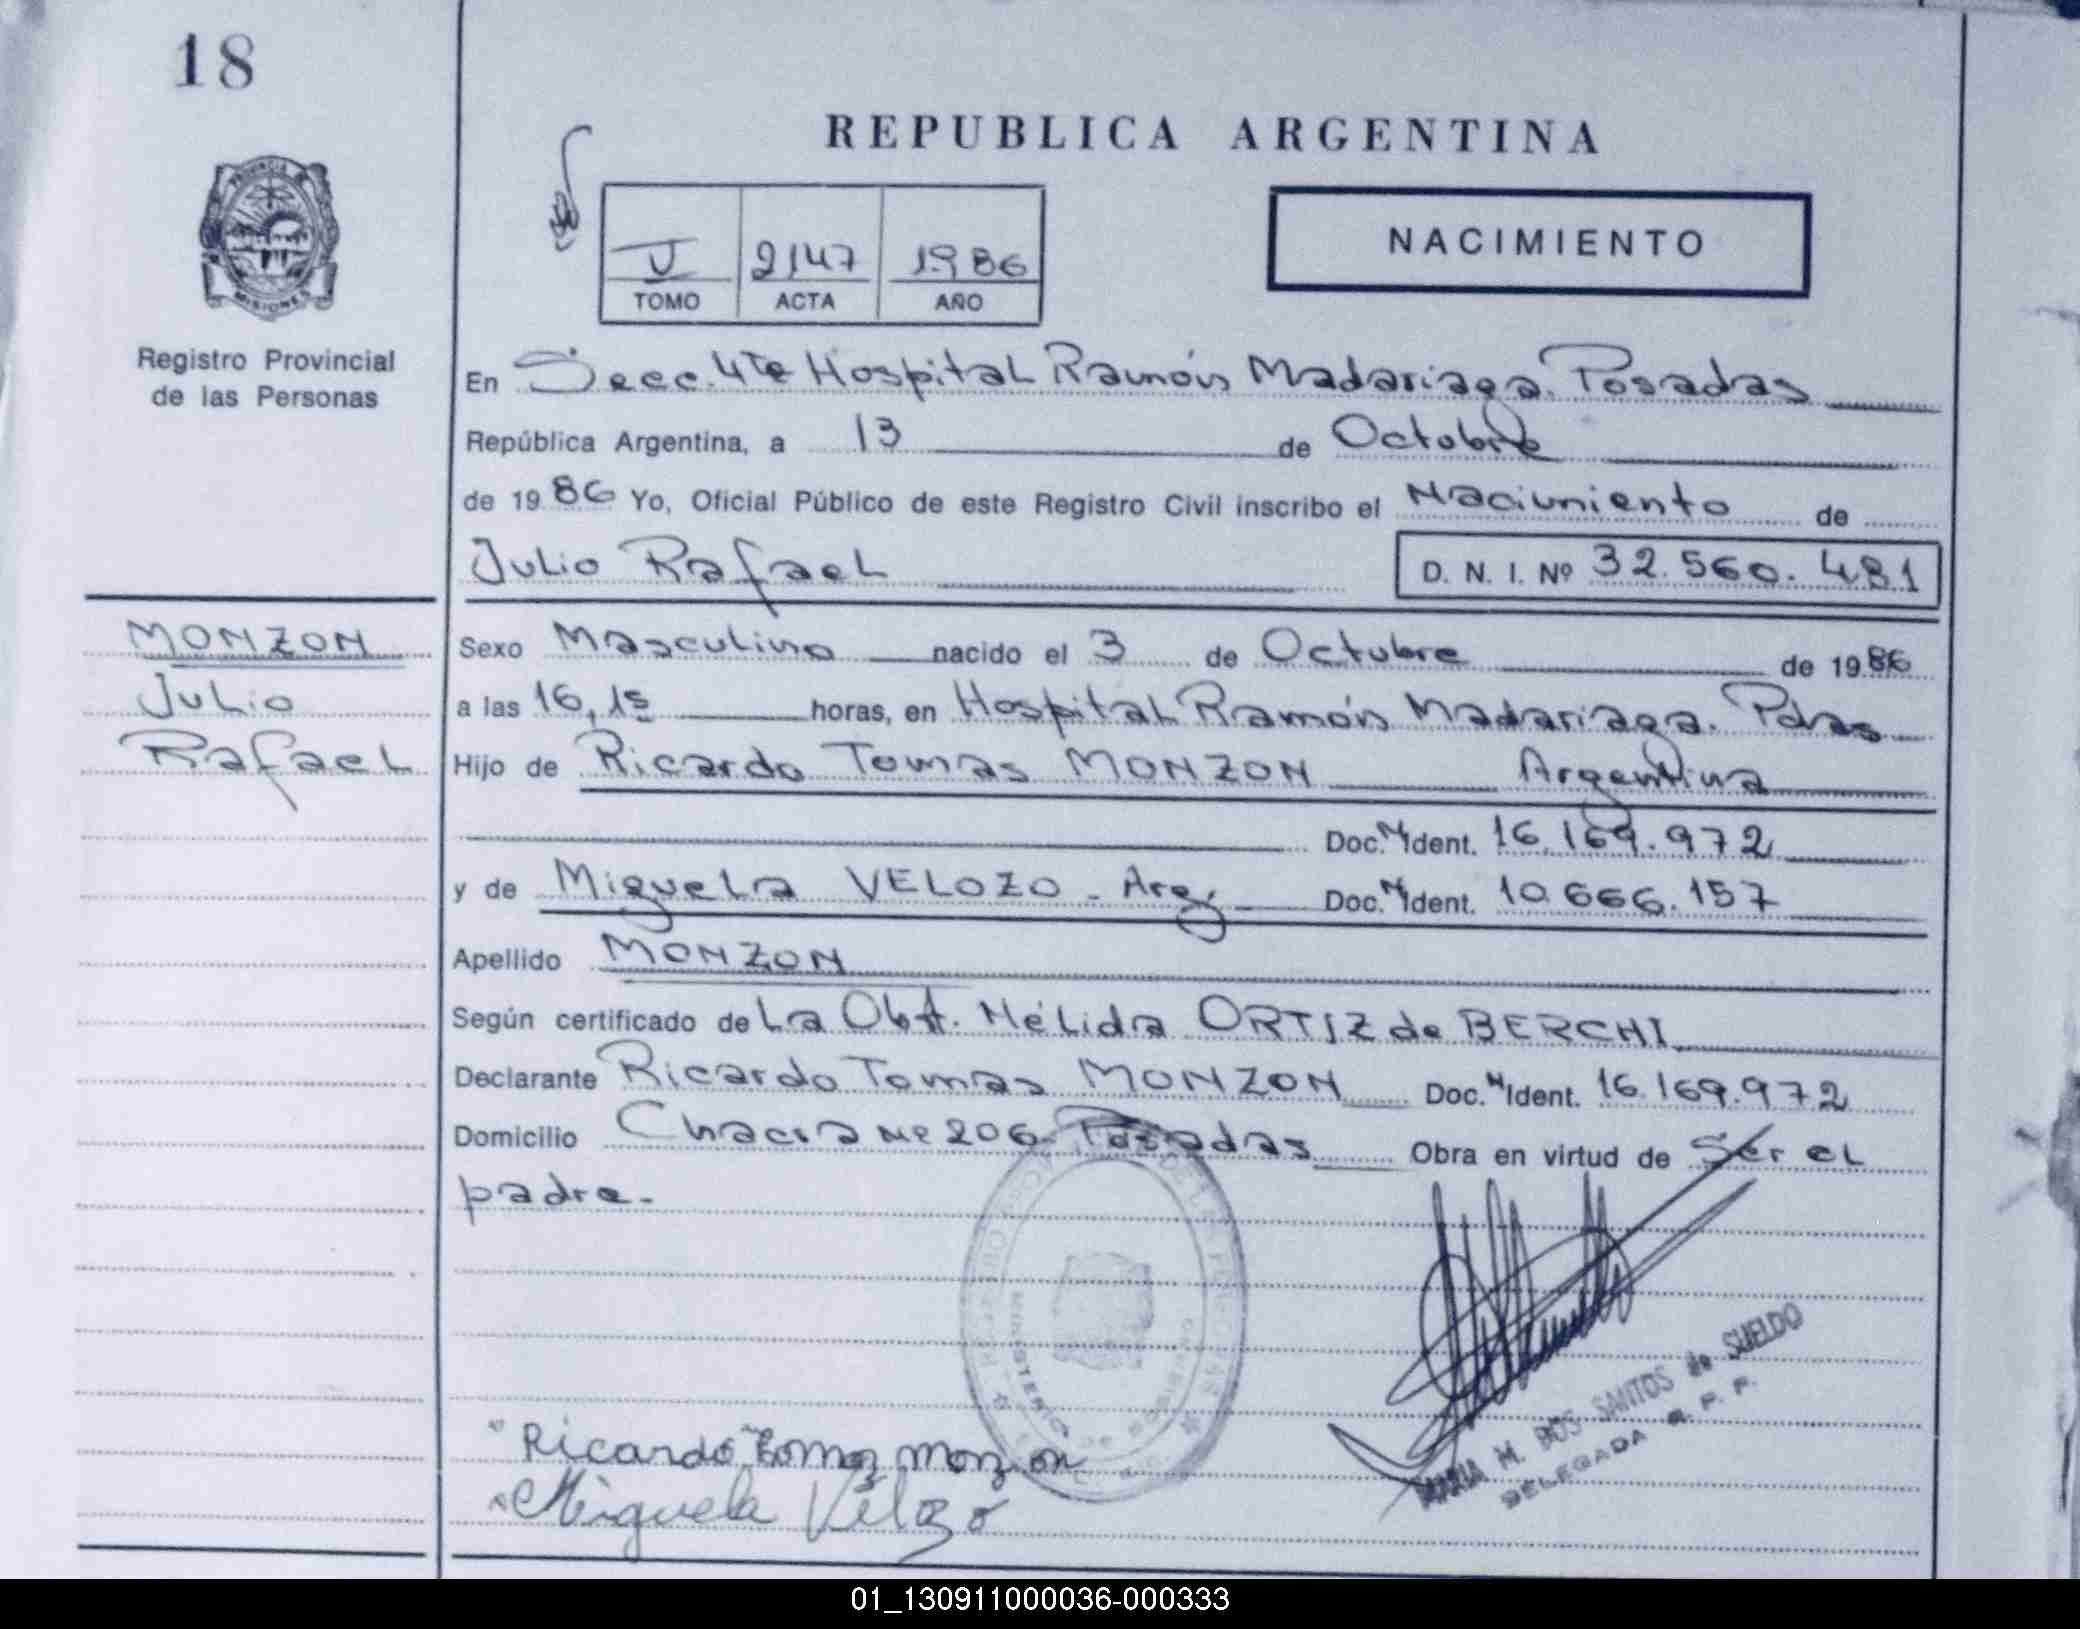 18
REPUBLICA ARGENTINA
PROVINCIA DE
MISIONES
Registro Provincial
de las Personas
V 2147 1986
TOMO ACTA AÑO
NACIMIENTO
En Secc. 4ta Hospital Ramón Madariaga. Posadas
República Argentina, a 13 de Octubre
de 1986 Yo, Oficial Público de este Registro Civil inscribo el Nacimiento de
Julio Rafael D. N. I. Nº 32.560.481
MONZON
Julio
Rafael
Sexo Masculino nacido el 3 de Octubre de 1986
a las 16,15 horas, en Hospital Ramón Madariaga. Pdas
Hijo de Ricardo Tomas MONZON Argentina
Doc. N Ident. 16.169.972
y de Miguela VELOZO - Arg. Doc. N Ident. 10.666.157
Apellido MONZON
Según certificado de La Obst. Nélida ORTIZ de BERCHI
Declarante Ricardo Tomas MONZON Doc. N Ident. 16.169.972
Domicilio Chacra Nº 206 - Posadas Obra en virtud de Ser el
padre.
MINISTERIO DE GOBIERNO
Ricardo Tomaz Monzon
Miguela Velozo
MARIA M. DOS SANTOS de SUELDO
DELEGADA R. P. P.
01_130911000036-000333